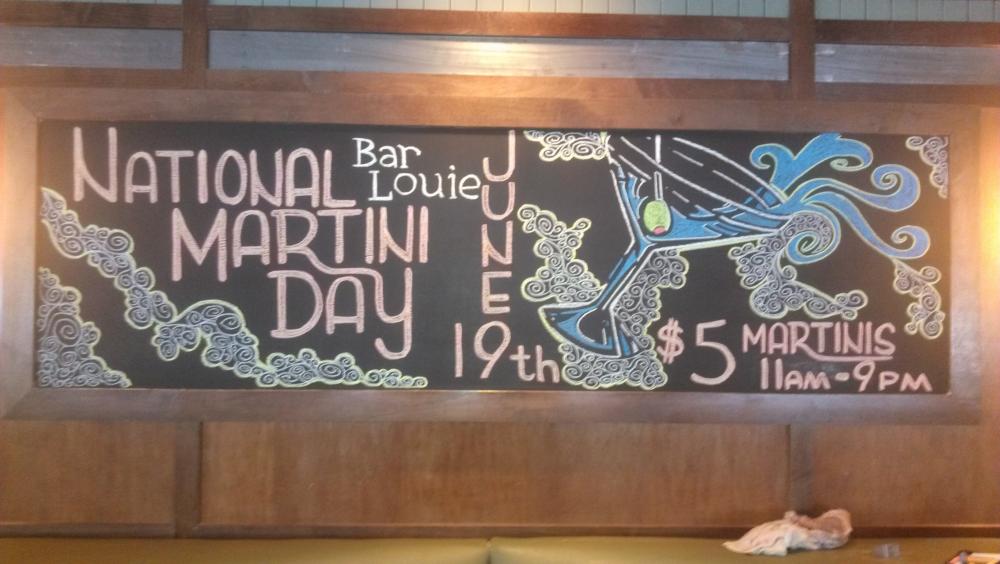 NATIONAL
MARTINI
DAY
Bar
Louie
JUNE
19th
$5 MARTINIS
11AM-9PM